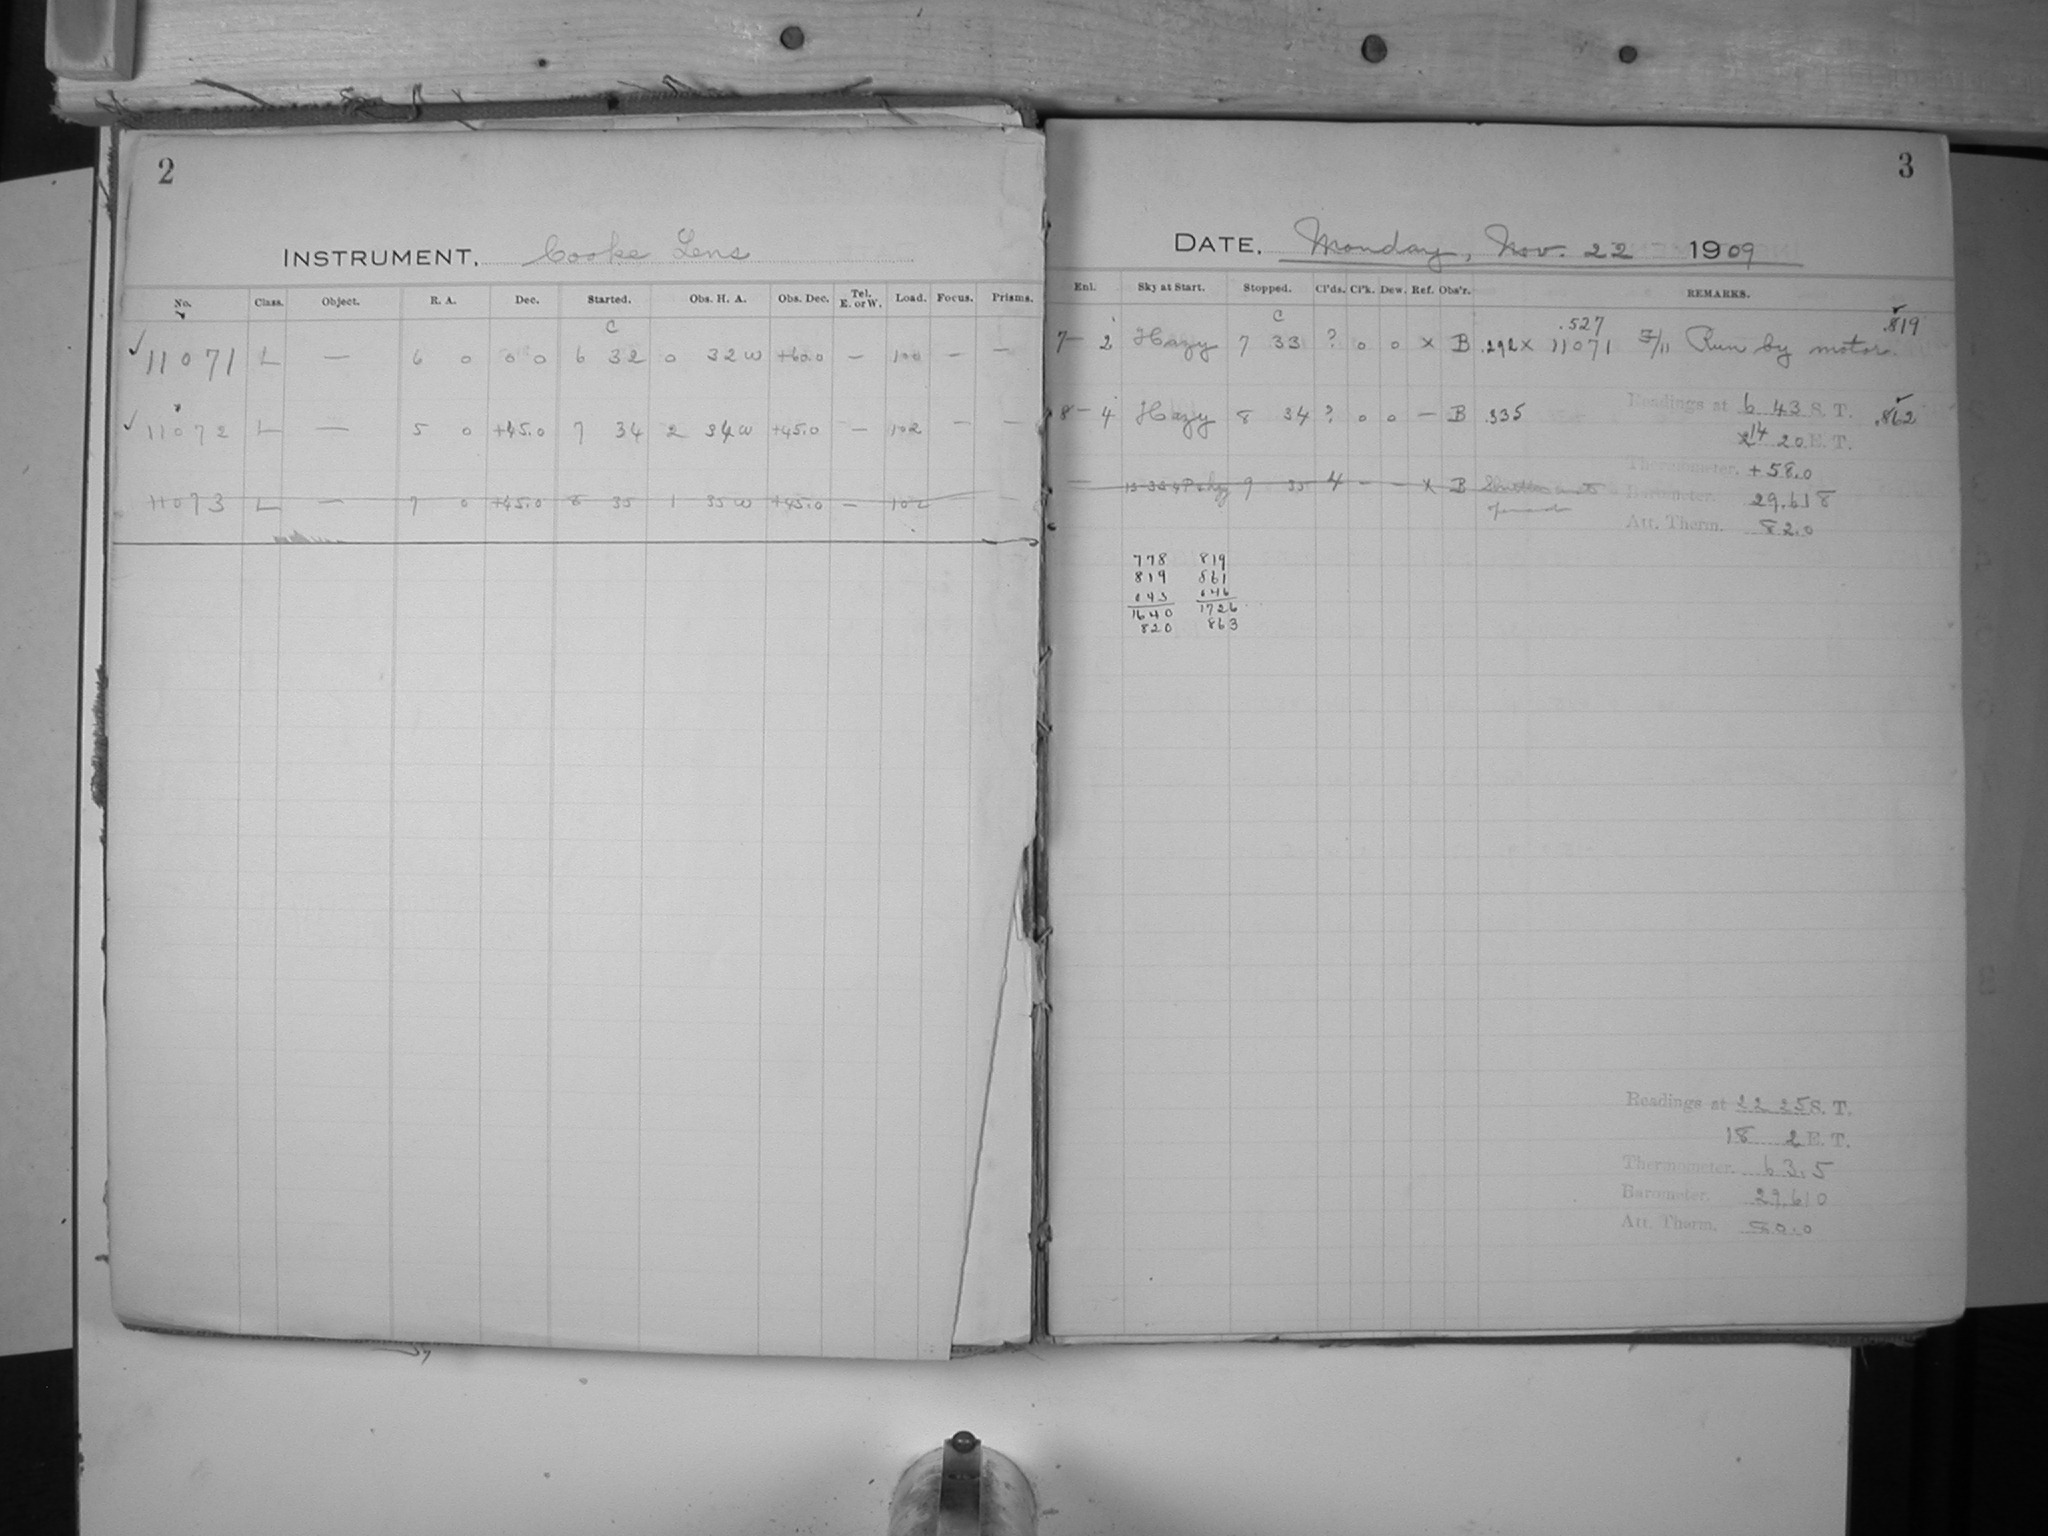 2
INSTRUMENT. Cooke Lens
No. Class. Object. R. A. Dec. Started. Obs. H. A. Obs. Dec. Tel. E. or W. Load. Focus. Prisms.
C
✓ 11071 L — 6 0 0 0 6 32 0 32 W +60.0 — 100 — —
✓ 11072 L — 5 0 +45.0 7 34 2 34 W +45.0 — 102 — —
11073 L — 7 0 +45.0 8 35 1 35 W +45.0 — 102 —
3
DATE. Monday, Nov. 22 1909
Enl. Sky at Start. Stopped. Cl'ds. Cl'k. Dew. Ref. Obs'r. REMARKS.
C .527 .819
7 — 2 Hazy 7 33 ? 0 0 × B .292 × 11071 Run by motor.
8 — 4 Hazy 8 34 ? 0 0 — B .335 Readings at 6 43 S. T. .862
14 20 E. T.
Thermometer. +58.0
— 9 35 4 — — × B Shutter not
opened
Barometer. 29.618
Att. Therm. 82.0
778 819
819 861
043 046
1640 1726
820 863
Readings at 22 25 S. T.
18 2 E. T.
Thermometer. 63.5
Barometer. 29.610
Att. Therm. 80.0